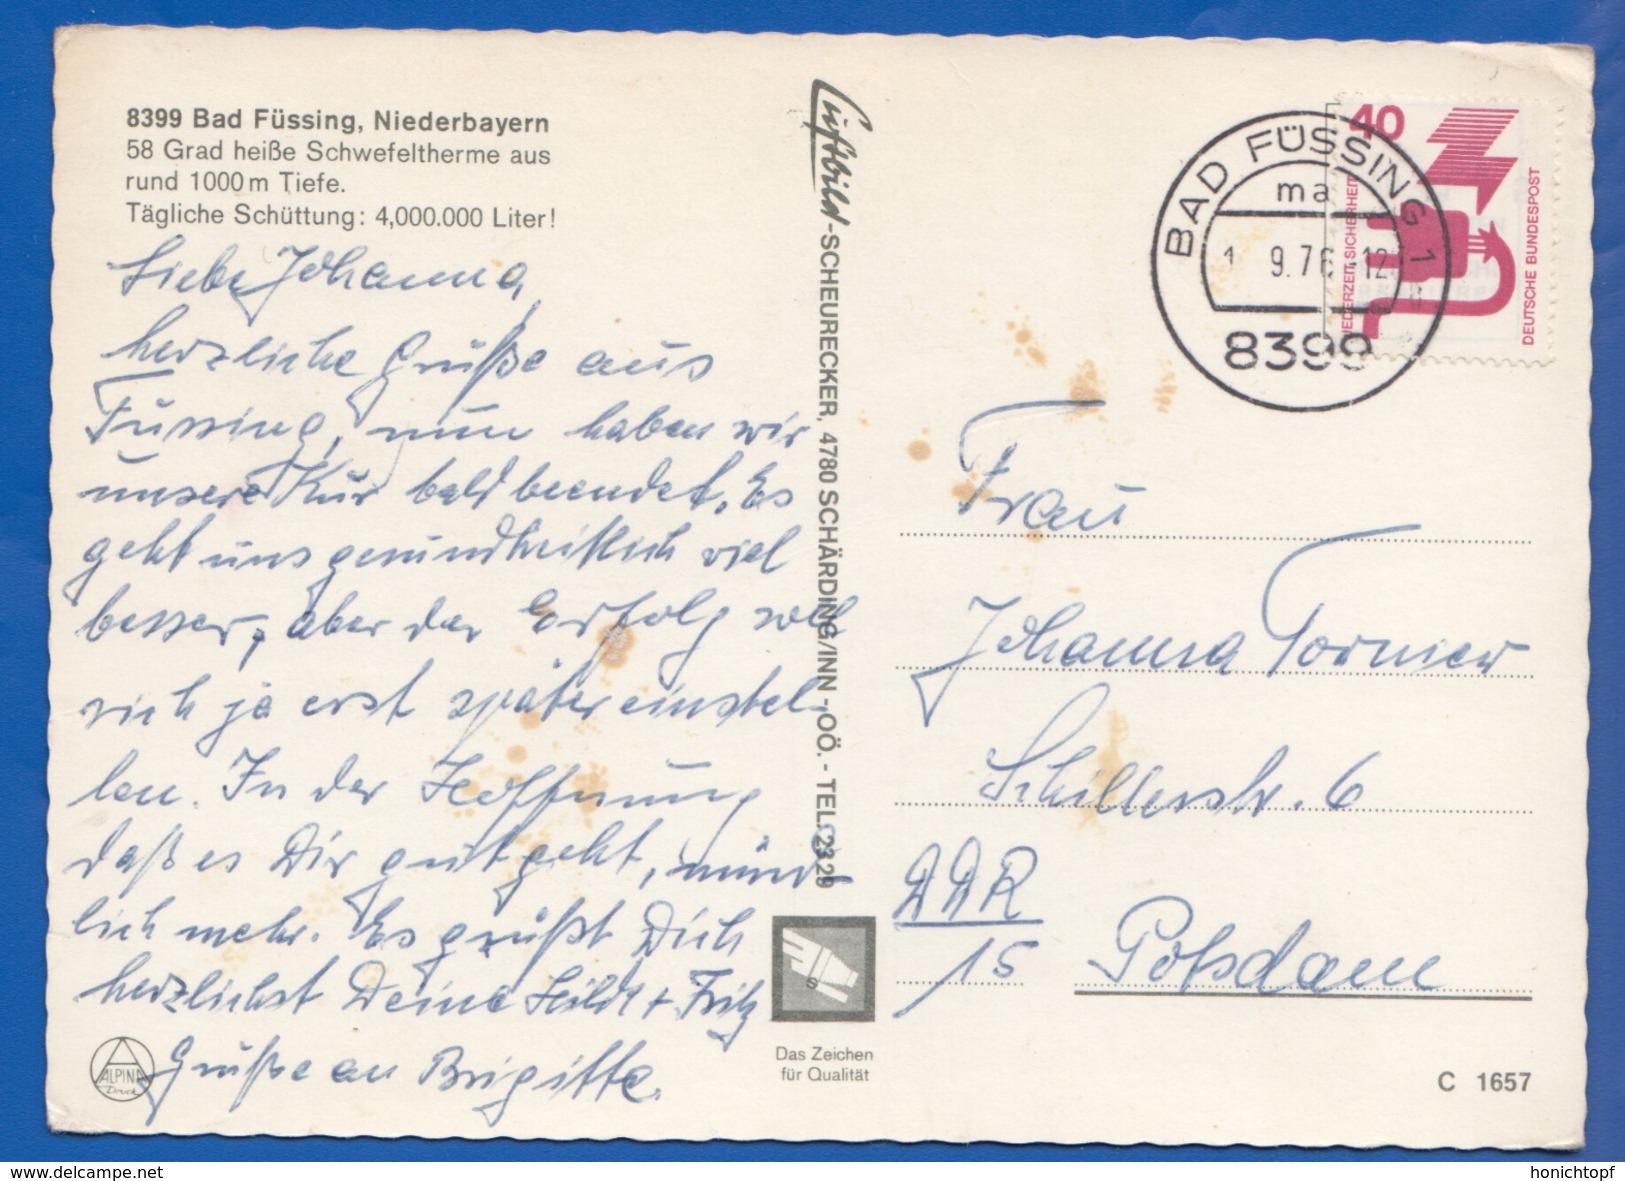 8399 Bad Füssing, Niederbayern
58 Grad heiße Schwefeltherme aus
rund 1000 m Tiefe.
Tägliche Schüttung: 4,000.000 Liter!
Liebe Johanna,
herzliche Grüße aus
Füssing, nun haben wir
unsere Kur bald beendet. Es
geht uns gesundheitlich viel
besser, aber der Erfolg soll
sich ja erst später einstel-
len. In der Hoffnung
daß es Dir gut geht, münd-
lich mehr. Es grüßt Dich
herzlichst Deine Hilde + Fritz
Grüße an Brigitte.
ALPINA
Druck
Luftbild-SCHEURECKER, 4780 SCHÄRDING/INN-OÖ. - TEL. 2329
S
Das Zeichen
für Qualität
BAD FÜSSING 1
ma
1. 9.76-12
8399
40
JEDERZEIT SICHERHEIT
DEUTSCHE BUNDESPOST
Frau
Johanna Tornier
Schillerstr. 6
DDR
15 Potsdam
C 1657
www.delcampe.net
honichtopf